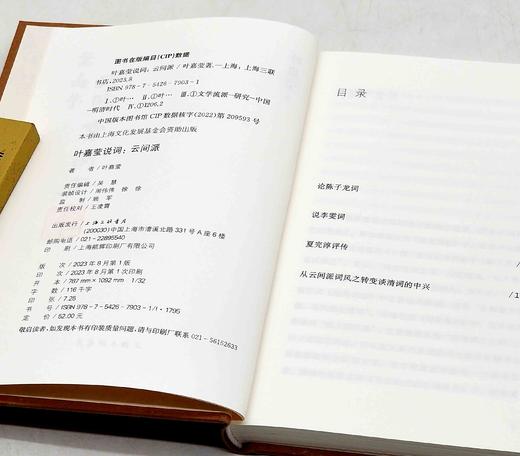 图书在版编目(CIP)数据
叶嘉莹说词:云间派 / 叶嘉莹著.—上海:上海三联
书店,2023.8
ISBN 978-7-5426-7903-1
Ⅰ.①叶… Ⅱ.①叶… Ⅲ.①文学流派-研究-中国
-明清时代 Ⅳ.①I206.2
中国版本图书馆CIP数据核字(2022)第209593号
本书由上海文化发展基金会资助出版
叶嘉莹说词:云间派
著 者 / 叶嘉莹
责任编辑 / 吴 慧
装帧设计 / 周伟伟 徐 徐
监 制 / 姚 军
责任校对 / 王凌霄
出版发行 / 上海三联书店
(200030)中国上海市漕溪北路331号A座6楼
邮购电话 / 021-22895540
印 刷 / 上海颛辉印刷厂有限公司
版 次 / 2023年8月第1版
印 次 / 2023年8月第1次印刷
开 本 / 787mm×1092mm 1/32
字 数 / 116千字
印 张 / 7.25
书 号 / ISBN 978-7-5426-7903-1/I·1795
定 价 / 52.00元
敬启读者,如发现本书有印装质量问题,请与印刷厂联系021-56152633
目 录
论陈子龙词
说李雯词
夏完淳评传
从云间派词风之转变谈清词的中兴